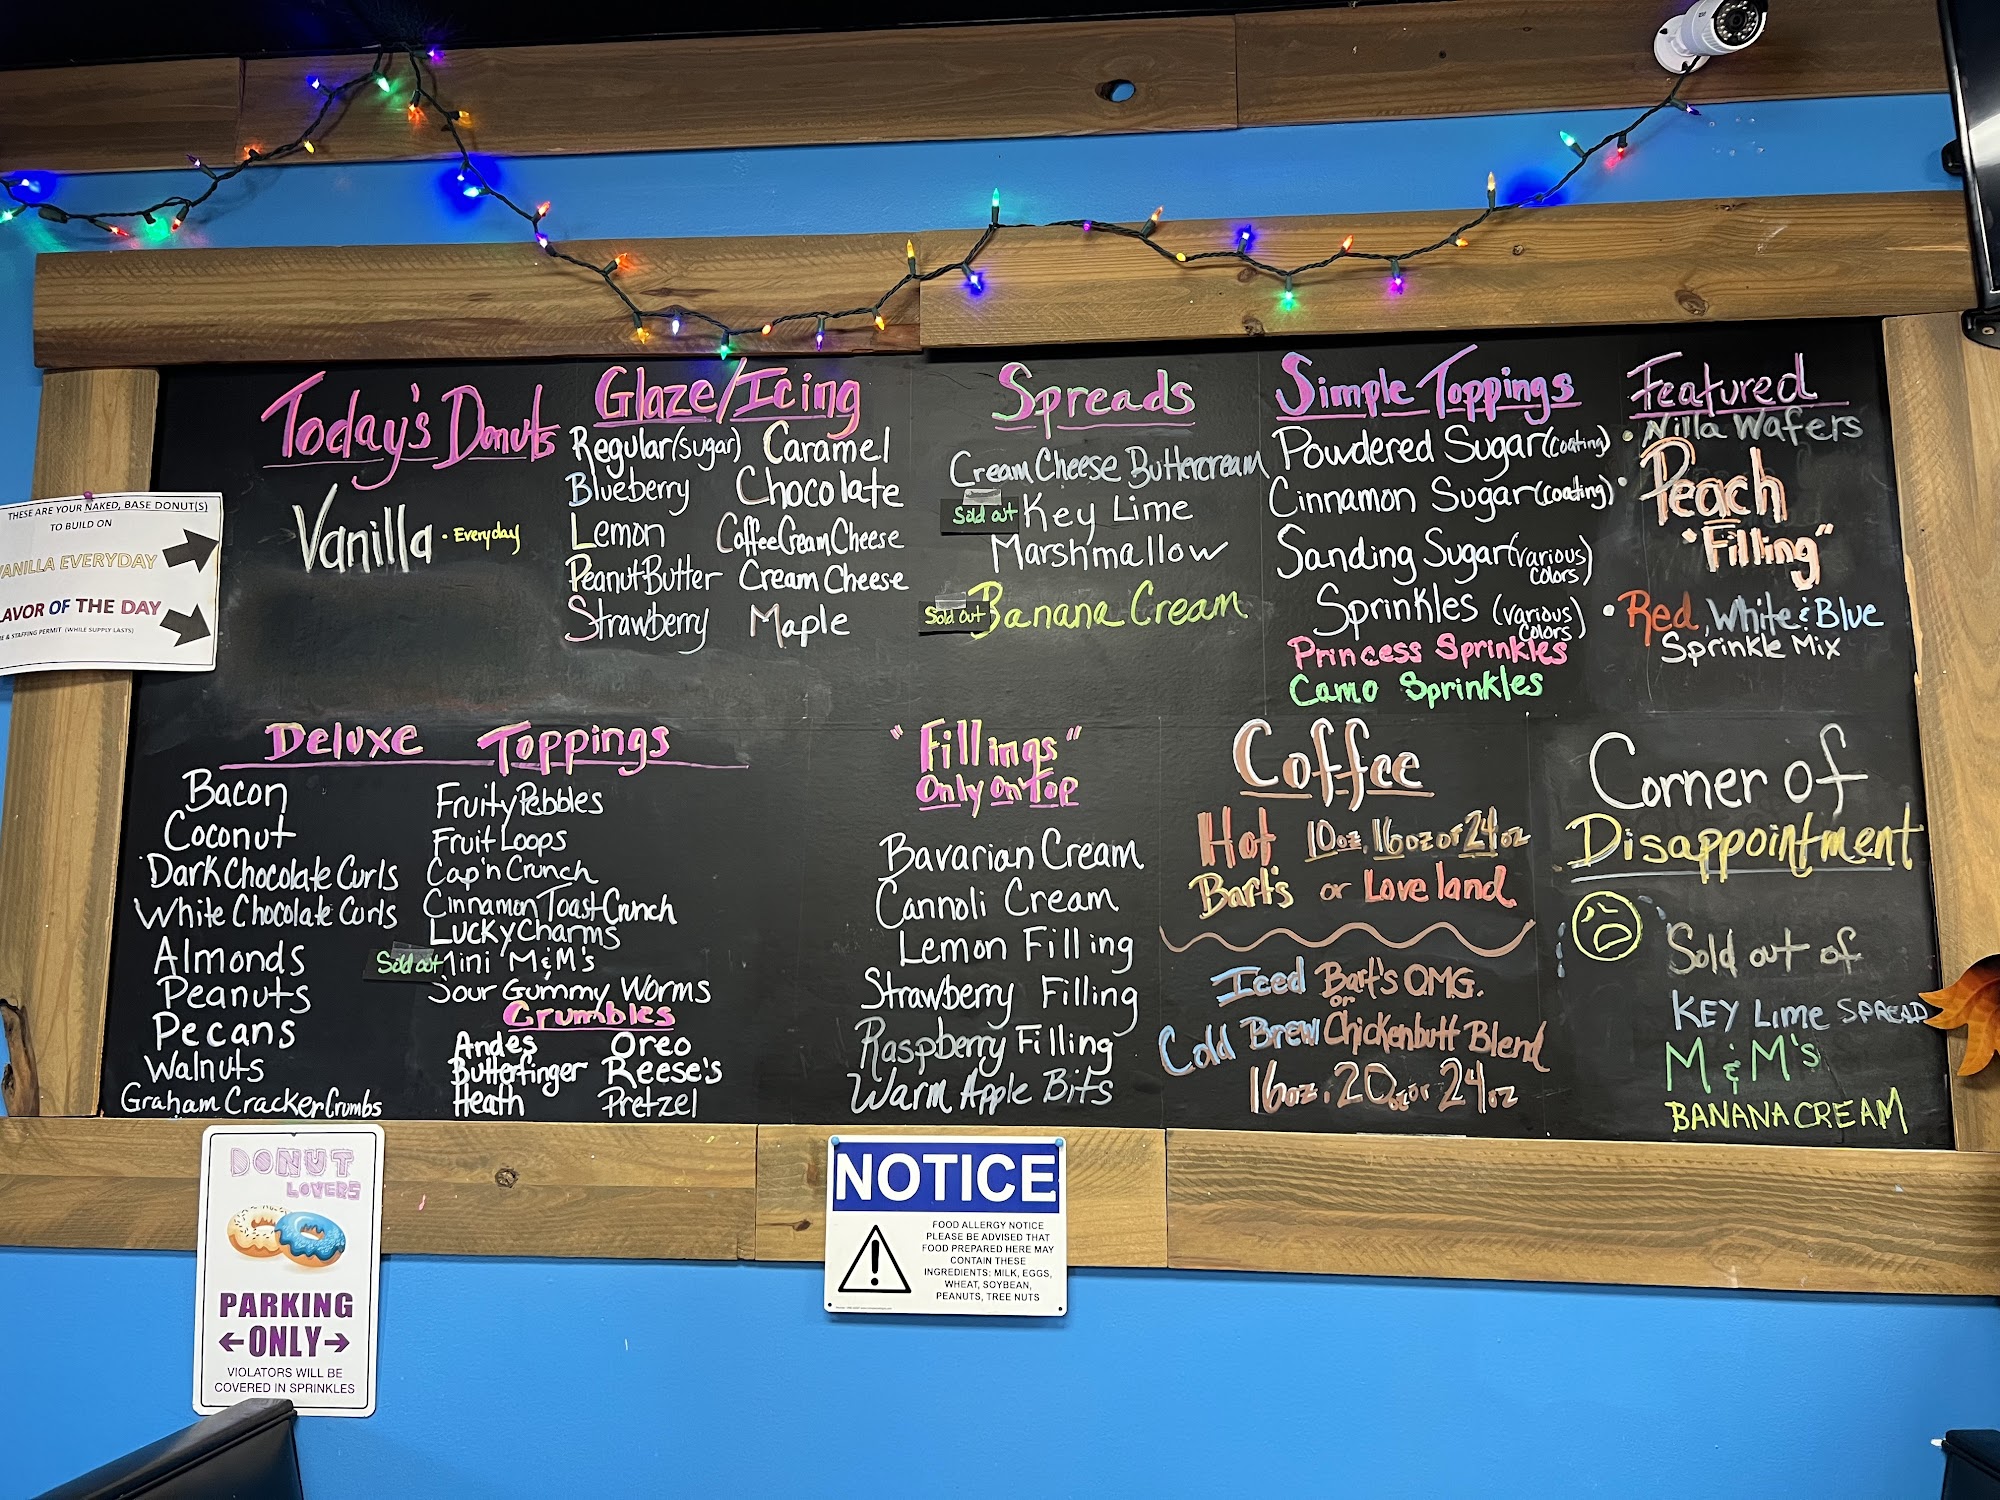 THESE ARE YOUR NAKED, BASE DONUT(S)
TO BUILD ON
VANILLA EVERYDAY
LAVOR OF THE DAY
E & STAFFING PERMIT (WHILE SUPPLY LASTS)
Today's Donuts
Vanilla • Everyday
Glaze/Icing
Regular (sugar) Caramel
Blueberry Chocolate
Lemon Coffee Cream Cheese
Peanut Butter Cream Cheese
Strawberry Maple
Spreads
Cream Cheese Buttercream
Sold out Key Lime
Marshmallow
Sold out Banana Cream
Simple Toppings
Powdered Sugar (coating)
Cinnamon Sugar (coating)
Sanding Sugar (various colors)
Sprinkles (various colors)
Princess Sprinkles
Camo Sprinkles
Featured
• Nilla Wafers
• Peach
"Filling"
• Red, White & Blue
Sprinkle Mix
Deluxe Toppings
Bacon
Coconut
Dark Chocolate Curls
White Chocolate Curls
Almonds
Peanuts
Pecans
Walnuts
Graham Cracker Crumbs
Fruity Pebbles
Fruit Loops
Cap'n Crunch
Cinnamon Toast Crunch
Lucky Charms
Sold out Mini M&M's
Sour Gummy Worms
Crumbles
Andes Oreo
Butterfinger Reese's
Heath Pretzel
"Fillings"
Only on Top
Bavarian Cream
Cannoli Cream
Lemon Filling
Strawberry Filling
Raspberry Filling
Warm Apple Bits
Coffee
Hot 10oz. 16oz or 24oz
Bart's or Loveland
Iced Bart's OMG.
or
Cold Brew Chickenbutt Blend
16oz. 20oz or 24oz
Corner of
Disappointment
Sold out of
KEY Lime SPREAD
M & M's
BANANA CREAM
DONUT
LOVERS
PARKING
←ONLY→
VIOLATORS WILL BE
COVERED IN SPRINKLES
NOTICE
FOOD ALLERGY NOTICE
PLEASE BE ADVISED THAT
FOOD PREPARED HERE MAY
CONTAIN THESE
INGREDIENTS: MILK, EGGS,
WHEAT, SOYBEAN,
PEANUTS, TREE NUTS